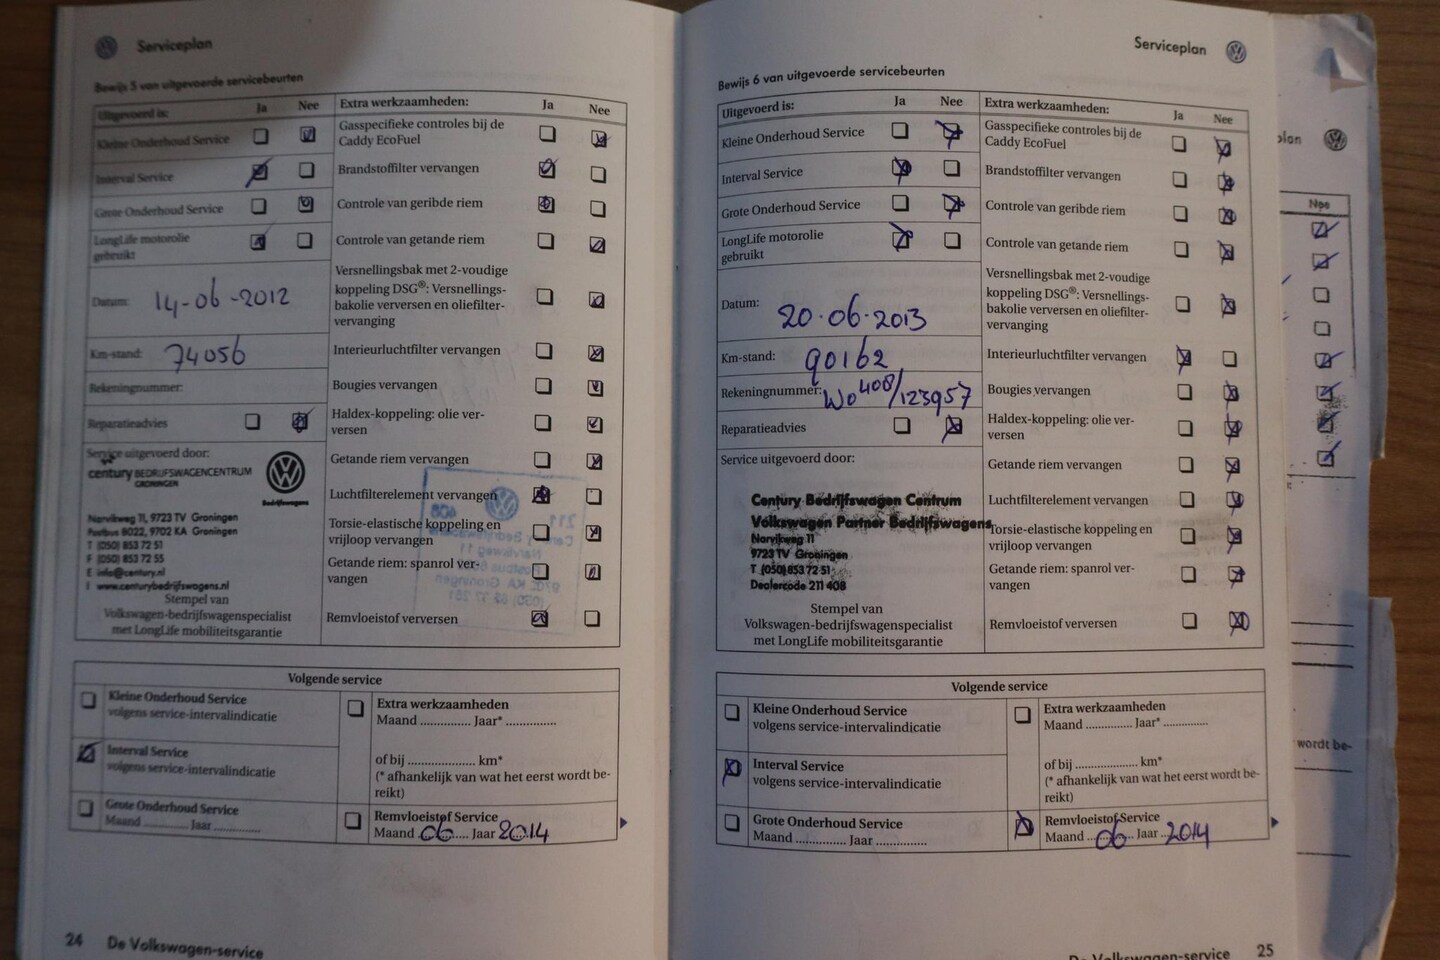 Serviceplan
Bewijs 5 van uitgevoerde servicebeurten
Uitgevoerd is: Ja Nee
Kleine Onderhoud Service
Interval Service
Grote Onderhoud Service
LongLife motorolie
gebruikt
Datum: 14-06-2012
Km-stand: 74056
Rekeningnummer:
Reparatieadvies
Service uitgevoerd door:
century BEDRIJFSWAGENCENTRUM
GRONINGEN
Bedrijfswagens
Narvikweg 11, 9723 TV Groningen
Postbus 8022, 9702 KA Groningen
T (050) 853 72 51
F (050) 853 72 55
E info@century.nl
I www.centurybedrijfswagens.nl
Stempel van
Volkswagen-bedrijfswagenspecialist
met LongLife mobiliteitsgarantie
Extra werkzaamheden: Ja Nee
Gasspecifieke controles bij de
Caddy EcoFuel
Brandstoffilter vervangen
Controle van geribde riem
Controle van getande riem
Versnellingsbak met 2-voudige
koppeling DSG®: Versnellings-
bakolie verversen en oliefilter-
vervanging
Interieurluchtfilter vervangen
Bougies vervangen
Haldex-koppeling: olie ver-
versen
Getande riem vervangen
Luchtfilterelement vervangen
Torsie-elastische koppeling en
vrijloop vervangen
Getande riem: spanrol ver-
vangen
Remvloeistof verversen
Volgende service
Kleine Onderhoud Service
volgens service-intervalindicatie
Interval Service
volgens service-intervalindicatie
Grote Onderhoud Service
Maand ............ Jaar ............
Extra werkzaamheden
Maand .............. Jaar* ..............
of bij .................... km*
(* afhankelijk van wat het eerst wordt be-
reikt)
Remvloeistof Service
Maand 06 Jaar 2014
24 De Volkswagen-service
Serviceplan
Bewijs 6 van uitgevoerde servicebeurten
Uitgevoerd is: Ja Nee
Kleine Onderhoud Service
Interval Service
Grote Onderhoud Service
LongLife motorolie
gebruikt
Datum: 20-06-2013
Km-stand: 90162
Rekeningnummer: Wo 408/123957
Reparatieadvies
Service uitgevoerd door:
Century Bedrijfswagen Centrum
Volkswagen Partner Bedrijfswagens
Narvikweg 11
9723 TV Groningen
T (050) 853 72 51
Dealercode 211 408
Stempel van
Volkswagen-bedrijfswagenspecialist
met LongLife mobiliteitsgarantie
Extra werkzaamheden: Ja Nee
Gasspecifieke controles bij de
Caddy EcoFuel
Brandstoffilter vervangen
Controle van geribde riem
Controle van getande riem
Versnellingsbak met 2-voudige
koppeling DSG®: Versnellings-
bakolie verversen en oliefilter-
vervanging
Interieurluchtfilter vervangen
Bougies vervangen
Haldex-koppeling: olie ver-
versen
Getande riem vervangen
Luchtfilterelement vervangen
Torsie-elastische koppeling en
vrijloop vervangen
Getande riem: spanrol ver-
vangen
Remvloeistof verversen
Volgende service
Kleine Onderhoud Service
volgens service-intervalindicatie
Interval Service
volgens service-intervalindicatie
Grote Onderhoud Service
Maand .............. Jaar ..............
Extra werkzaamheden
Maand ............. Jaar* .............
of bij .................. km*
(* afhankelijk van wat het eerst wordt be-
reikt)
Remvloeistof Service
Maand 06 Jaar 2014
De Volkswagen-service 25
plan
Nee
wordt be-